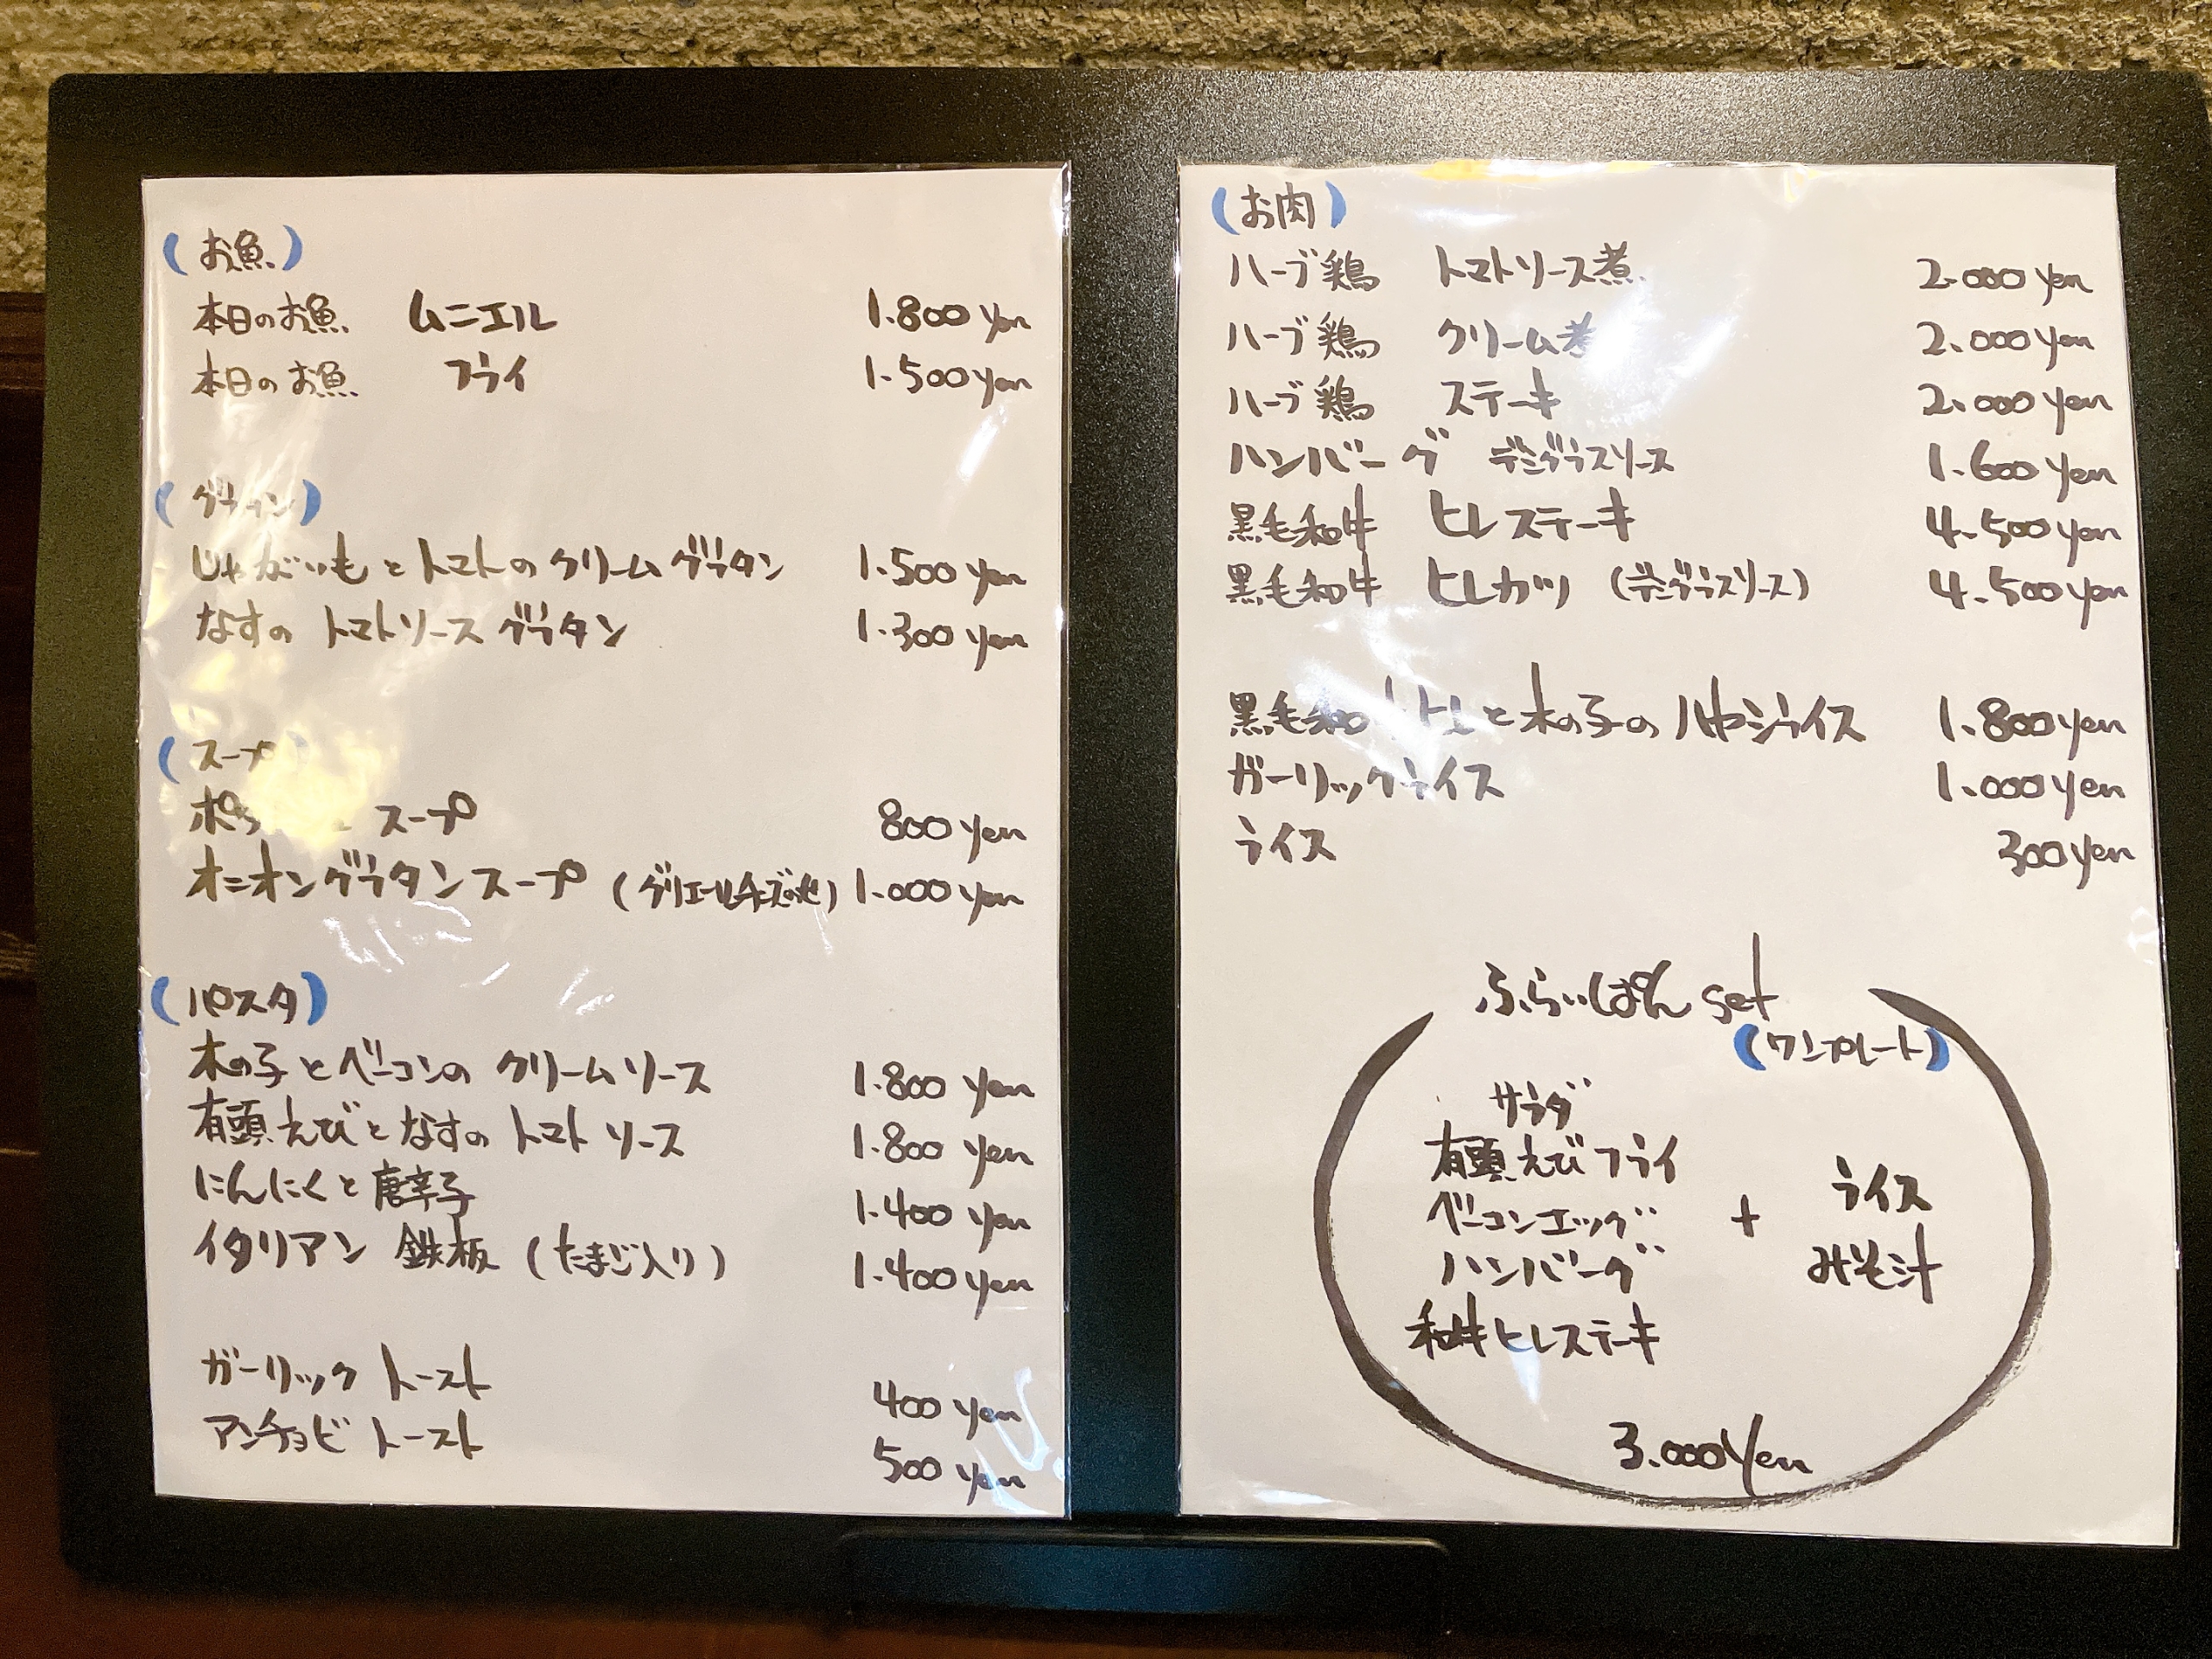 (お魚)
本日のお魚 ムニエル 1.800 yen
本日のお魚 フライ 1.500 yen
(グラタン)
じゃがいもとトマトのクリームグラタン 1.500 yen
なすの トマトソースグラタン 1.300 yen
(スープ)
スープ 800 yen
オニオングラタンスープ (グリエールチーズのせ) 1.000 yen
(パスタ)
木の子とベーコンの クリームソース 1.800 yen
有頭えびとなすの トマトソース 1.800 yen
にんにくと唐辛子 1.400 yen
イタリアン 鉄板 (たまご入り) 1.400 yen
ガーリック トースト 400 yen
アンチョビ トースト 500 yen
(お肉)
ハーブ鶏 トマトソース煮 2.000 yen
ハーブ鶏 クリーム煮 2.000 yen
ハーブ鶏 ステーキ 2.000 yen
ハンバーグ デミグラスソース 1.600 yen
黒毛和牛 ヒレステーキ 4.500 yen
黒毛和牛 ヒレカツ (デミグラスソース) 4.500 yen
黒毛和 と木の子のハヤシライス 1.800 yen
ガーリックライス 1.000 yen
ライス 300 yen
ふらいぱん set
(ワンプレート)
サラダ
有頭えびフライ
ベーコンエッグ
ハンバーグ
和牛ヒレステーキ
+
ライス
みそ汁
3.000 Yen